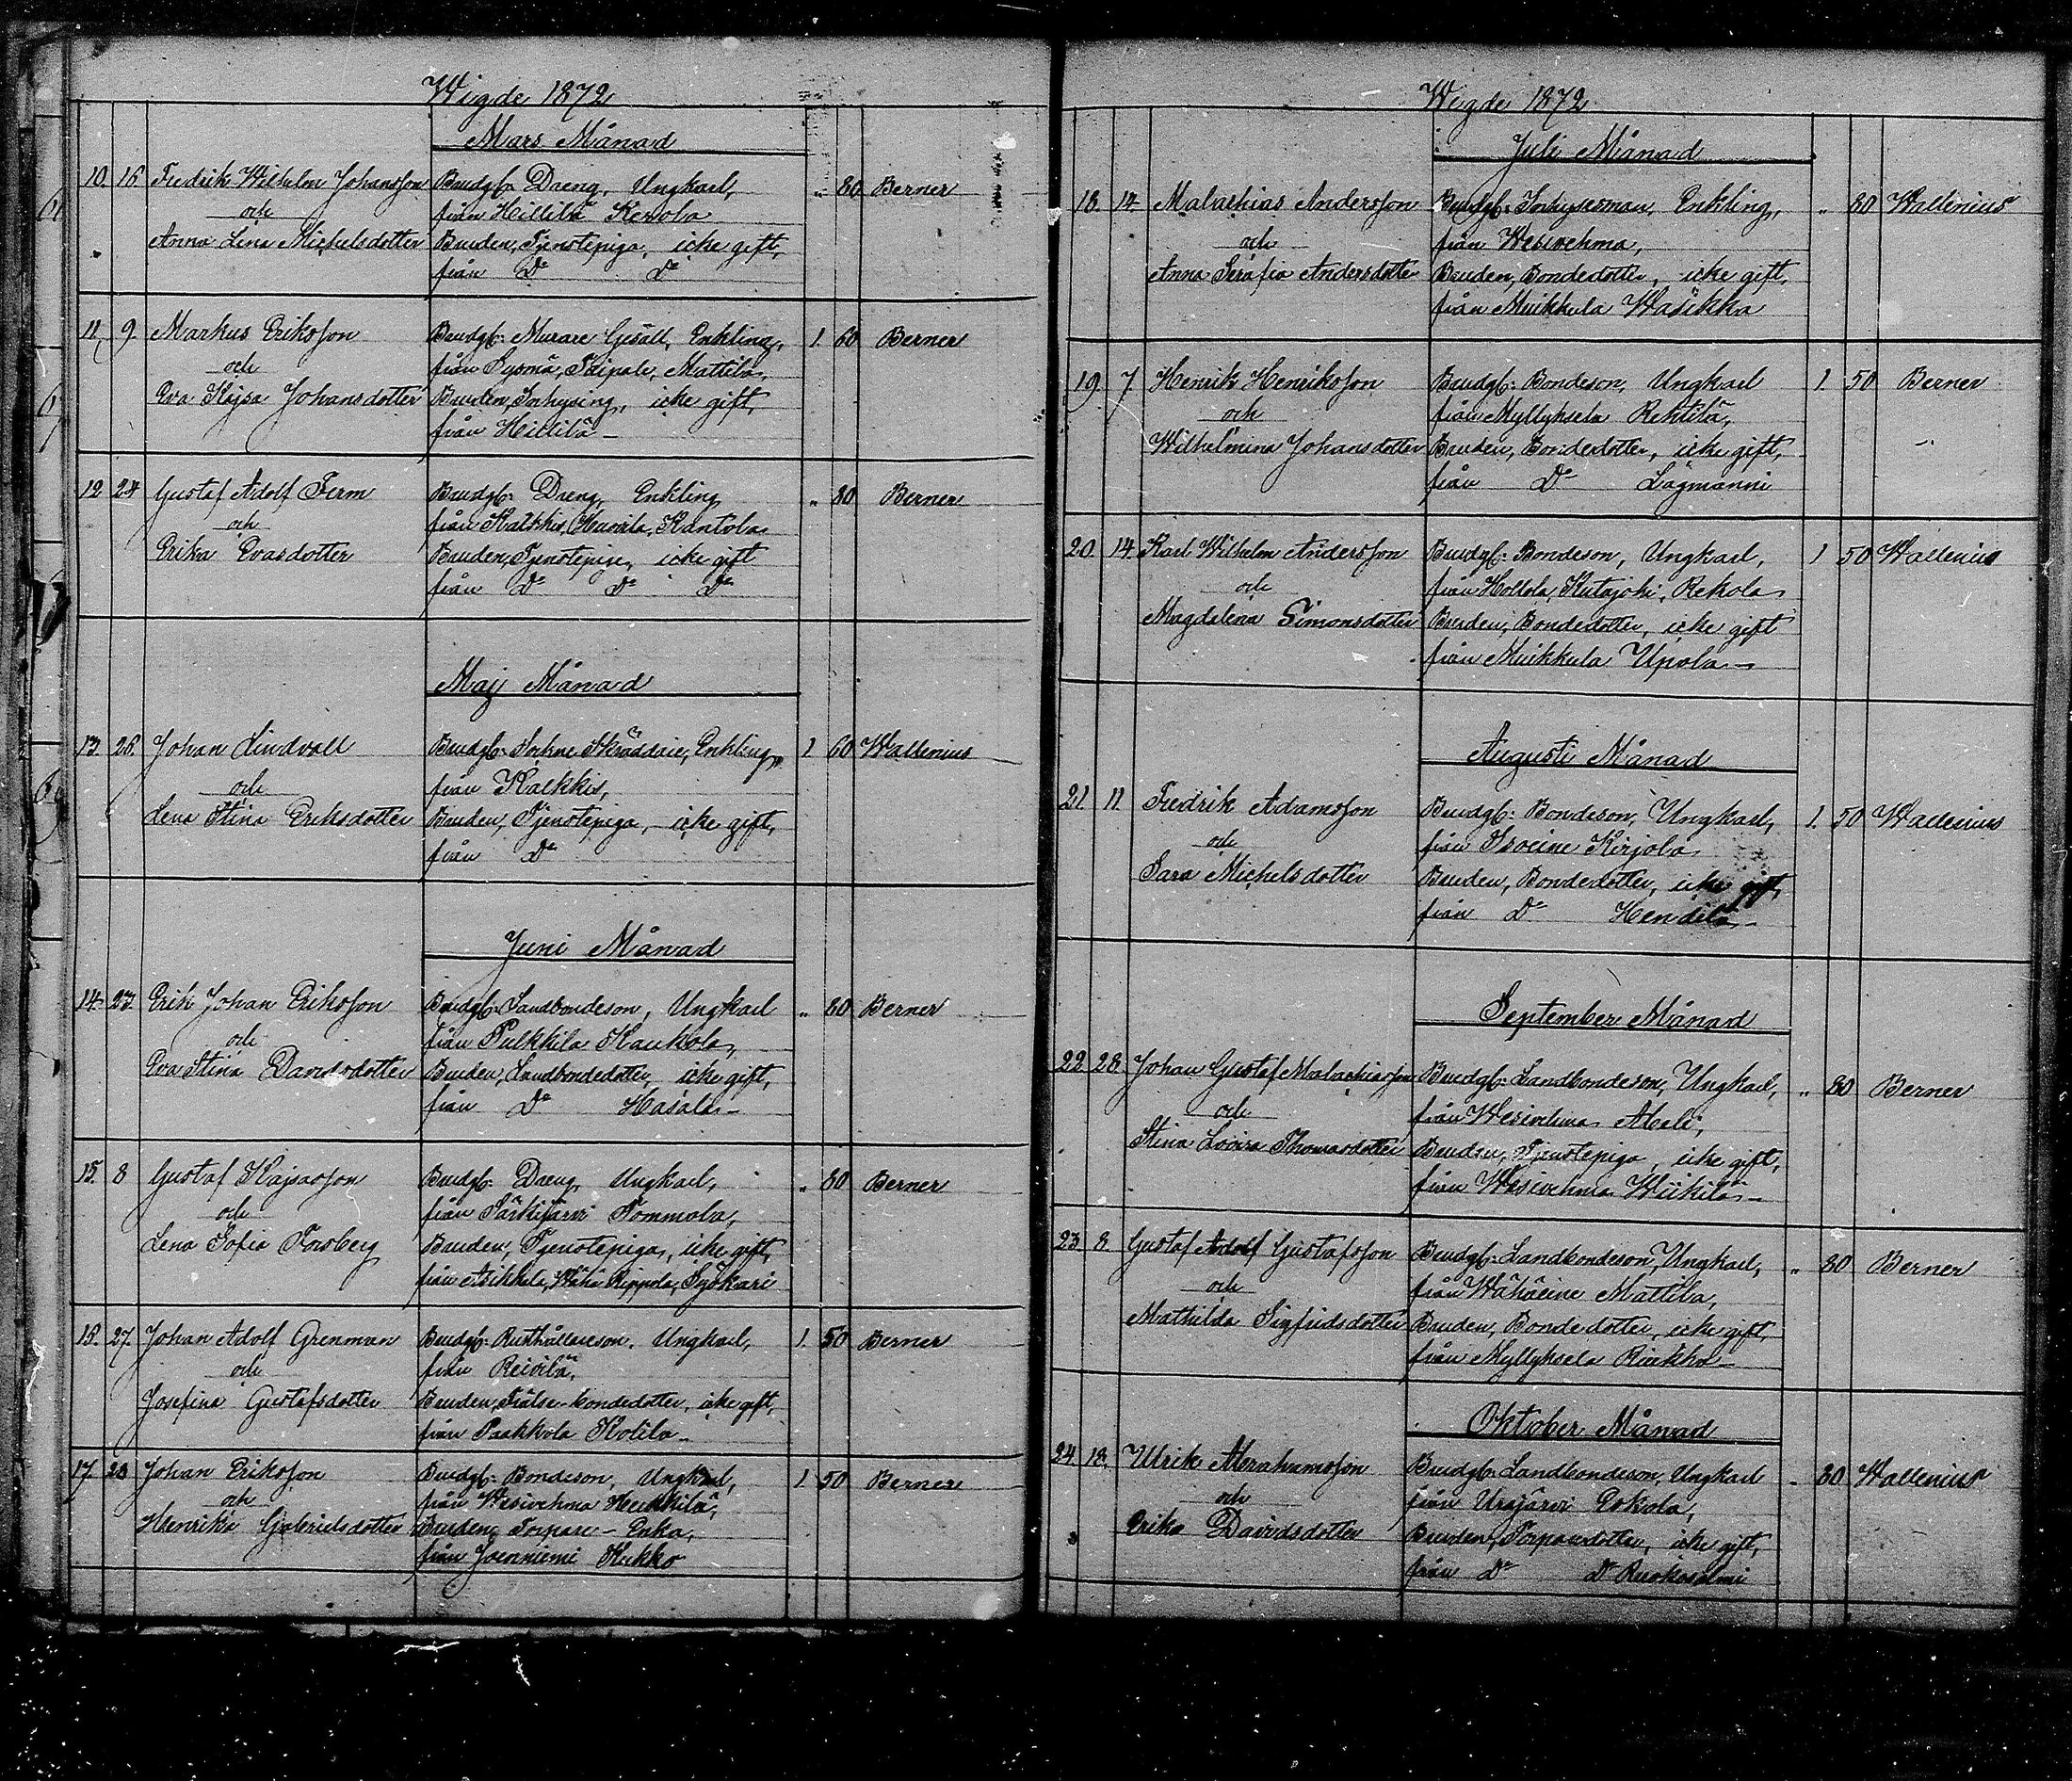 Wigde 1872
Mars Månad
10. 16 Fredrik Wilhelm Johansson Brudg: Dreng, Ungkarl, " 80 Berner
och från Hillilä Kerola
Anna Lena Michelsdotter Bruden, Tjenstepiga, icke gift,
från Do Do
11. 9. Markus Eriksson Brudg: Murare Gesäll, Enkling, 1 60 Berner
och från Sysmä, Taipale, Mattila,
Eva Kajsa Johansdotter Bruden, Inhysing, icke gift,
från Hillilä
12 24 Gustaf Adolf Ferm Brudg: Dreng, Enkling " 80 Berner
och från Kalkkis, Huovila, Kantola
Erika Evasdotter Bruden, Tjenstepiga, icke gift
från Do Do Do
Maj Månad
13. 26. Johan Lindvall Brudg: Sockne Skräddare, Enkling, 1 60 Wallenius
och från Kalkkis,
Lena Stina Eriksdotter Bruden, Tjenstepiga, icke gift,
från Do
Juni Månad
14. 23. Erik Johan Eriksson Brudg: Landbondeson, Ungkarl " 80 Berner
och från Pulkkila Kaukola,
Eva Stina Davidsdotter Bruden, Landbondedotter, icke gift,
från Do Hasala
15. 8 Gustaf Kajsasson Brudg: Dreng, Ungkarl, " 80 Berner
och från Särkijärvi Tommola,
Lena Sofia Forsberg Bruden, Tjenstepiga, icke gift,
från Asikkala, Wähä Rippola, Syökari
16. 27. Johan Adolf Grenman Brudg: Rusthållareson, Ungkarl, 1. 50 Berner
och från Reivilä,
Josefina Gustafsdotter Bruden, Frälse-bondedotter, icke gift,
från Paakkola Kotila
17. 23 Johan Eriksson Brudg: Bondeson, Ungkarl, 1 50 Berner
och från Wesivehma Heikkilä,
Henrika Gabrielsdotter Bruden, Torpare-Enka,
från Joenniemi Kukko
Wigde 1872
Juli Månad
18. 14. Malachias Andersson Brudg: Inhyserman, Enkling, " 80 Wallenius
och från Wesivehma,
Anna Serafia Andersdotter Bruden, Bondedotter, icke gift,
från Muikkula Wasikka
19. 7. Henrik Henriksson Brudg: Bondeson, Ungkarl 1. 50 Berner
och från Myllykselä Rehtilä,
Wilhelmina Johansdotter Bruden, Bondedotter, icke gift,
från Do Lagmanni
20. 14. Karl Wilhelm Andersson Brudg: Bondeson, Ungkarl, 1 50 Wallenius
och från Hollola, Kutajoki, Rekola
Magdalena Simonsdotter Bruden, Bondedotter, icke gift
från Muikkula Upola
Augusti Månad
21 11 Fredrik Adamsson Brudg: Bondeson, Ungkarl, 1. 50 Wallenius
och från Isoeine Kirjola
Sara Michelsdotter Bruden, Bondedotter, icke gift,
från Do Hendilä
September Månad
22 28. Johan Gustaf Malachiasson Brudg: Landbondeson, Ungkarl, " 80 Berner
och från Wesivehma Alali,
Stina Lovisa Thomasdotter Bruden, Tjenstepiga, icke gift,
från Wesivehma Wiikilä
23 8 Gustaf Adolf Gustafsson Brudg: Landbondeson, Ungkarl, " 80 Berner
och från Wähäeine Mattila,
Mathilda Sigfridsdotter Bruden, Bondedotter, icke gift,
från Myllykselä Rinkko
Oktober Månad
24 18. Ulrik Abrahamsson Brudg: Landbondeson, Ungkarl " 80 Wallenius
och från Urajärvi Eskola,
Erika Davidsdotter Bruden, Torparedotter, icke gift,
från Do Do Ruokosalmi